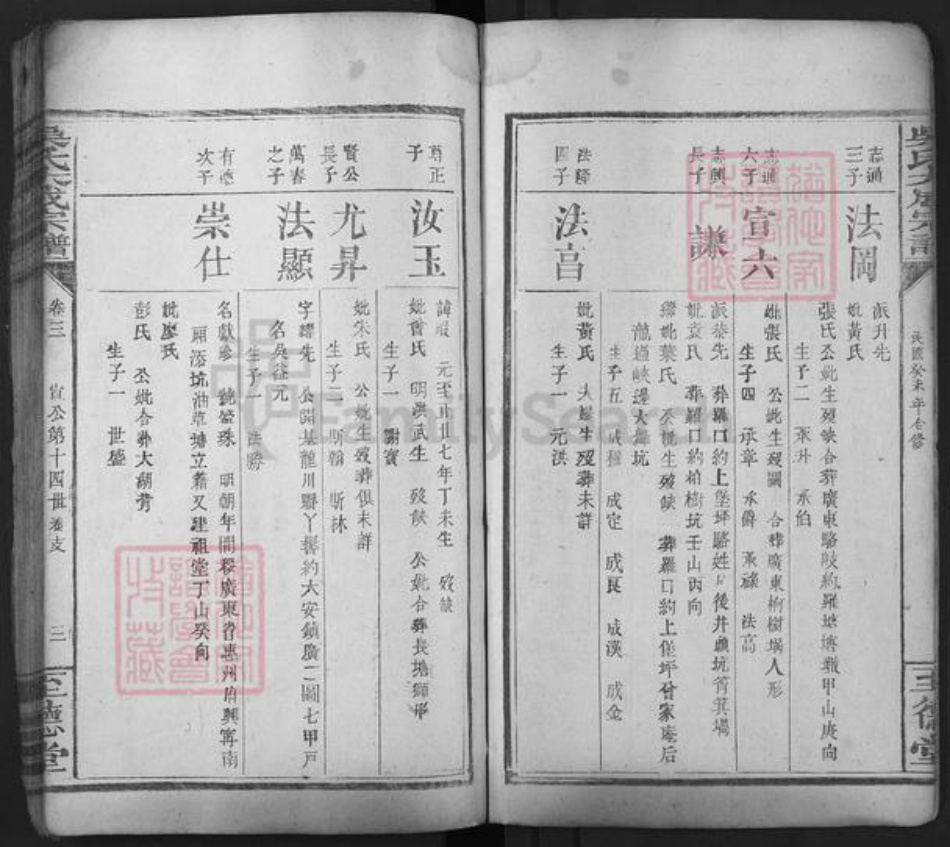 吳氏大成宗譜
民國癸未年合修
至德堂
志通三子
法岡
派升先
妣黃氏
張氏公妣生歿缺合葬廣東駱岐約羅塘塘墩甲山庚向
生子二 承升 承伯
志通六子
宣六
妣張氏 公妣生歿闕 合葬廣東桐樹塥人形
生子四 承章 承爵 承祿 法高
志興長子
謙
派泰先 葬羅口約上堡坪駱姓后後井壢坑筲箕塥
妣袁氏 葬羅口約柏樹坑壬山丙向
繼妣葉氏 公妣生歿缺 葬羅口約上堡坪曾家庵后
過峽邊大塥坑
生子五 成權 成定 成良 成漢 成金
法隆四子
法高
妣黃氏 夫婦生歿葬未詳
生子一 元洪
尊正子
汝玉
諱暇 元至正廿七年丁未生 歿缺
妣會氏 明洪武生 歿缺 公妣合葬長塘獅形
生子一 謝寶
賢公長子
尤昇
妣朱氏 公妣生歿葬俱未詳
生子二 斯翰 斯林
萬春之子
法顯
字躍先 公開基龍川縣丫髻約大安鎮廣二圖七甲戸
名吳益元
生子一 法勝
有德次子
崇仕
名獻珍 號螢珠 明朝年間移廣東省惠州府興寧南
廂添坑油草塘立籍又建祖堂丁山癸向
妣廖氏
彭氏 公妣合葬大湖背
生子一 世盛
吳氏大成宗譜
卷三 宣公第十四世卷支 三
至德堂
FamilySearch